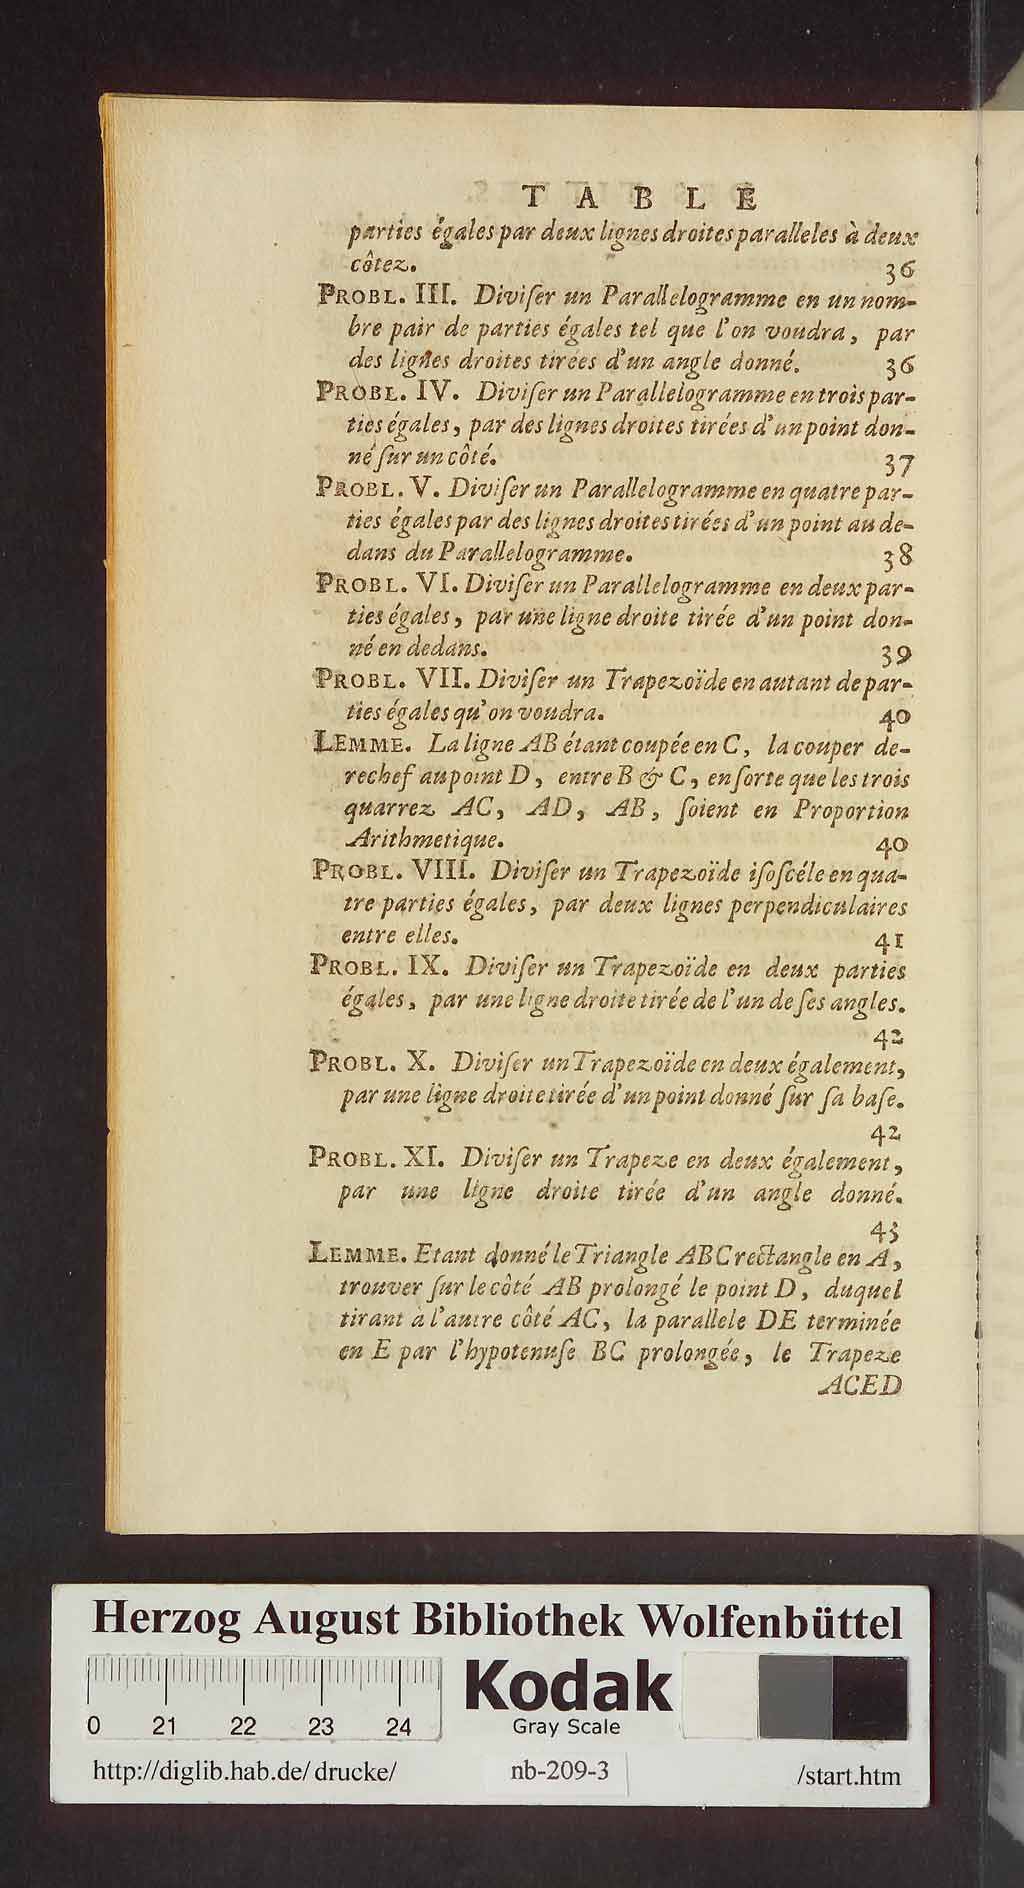 TABLE
parties égales par deux lignes droites paralleles à deux
côtez. 36
PROBL. III. Diviſer un Parallelogramme en un nom-
bre pair de parties égales tel que l'on voudra, par
des lignes droites tirées d'un angle donné. 36
PROBL. IV. Diviſer un Parallelogramme en trois par-
ties égales, par des lignes droites tirées d'un point don-
né ſur un côté. 37
PROBL. V. Diviſer un Parallelogramme en quatre par-
ties égales par des lignes droites tirées d'un point au de-
dans du Parallelogramme. 38
PROBL. VI. Diviſer un Parallelogramme en deux par-
ties égales, par une ligne droite tirée d'un point don-
né en dedans. 39
PROBL. VII. Diviſer un Trapezoïde en autant de par-
ties égales qu'on voudra. 40
LEMME. La ligne AB étant coupée en C, la couper de-
rechef au point D, entre B & C, enſorte que les trois
quarrez AC, AD, AB, ſoient en Proportion
Arithmetique. 40
PROBL. VIII. Diviſer un Trapezoïde iſoſcéle en qua-
tre parties égales, par deux lignes perpendiculaires
entre elles. 41
PROBL. IX. Diviſer un Trapezoïde en deux parties
égales, par une ligne droite tirée de l'un de ſes angles.
42
PROBL. X. Diviſer un Trapezoïde en deux également,
par une ligne droite tirée d'un point donné ſur ſa baſe.
42
PROBL. XI. Diviſer un Trapeze en deux également,
par une ligne droite tirée d'un angle donné.
43
LEMME. Etant donné le Triangle ABC rectangle en A,
trouver ſur le côté AB prolongé le point D, duquel
tirant à l'autre côté AC, la parallele DE terminée
en E par l'hypotenuſe BC prolongée, le Trapeze
ACED
Herzog August Bibliothek Wolfenbüttel
Kodak
Gray Scale
0 21 22 23 24
http://diglib.hab.de/ drucke/ nb-209-3 /start.htm